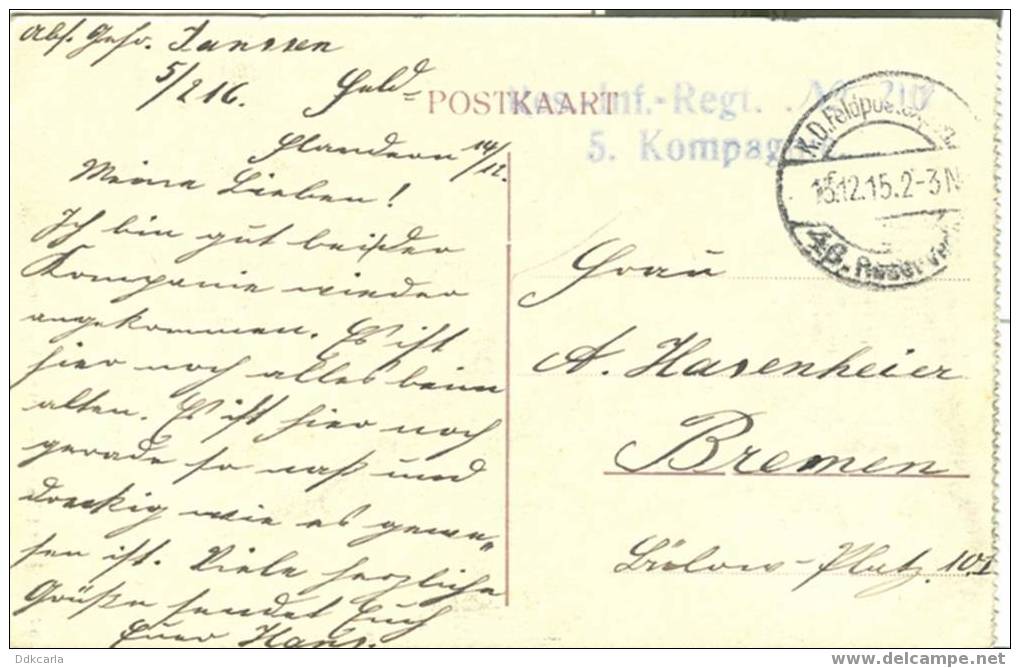 Abs. Gefr. Janssen
5/216.
Feld-
POSTKAART
Res. Inf.-Regt. No. 210
5. Kompag
K.D. Feldpost
15.12.15.2-3N
46. Reserve
Flandern 14/12.
Meine Lieben!
Ich bin gut bei der
Kompanie wieder
angekommen. Es ist
hier noch alles beim
alten. Es ist hier noch
gerade so naß und
dreckig wie es gewe„
sen ist. Viele herzliche
Grüße sendet Euch
Euer Hans.
Frau
A. Hasenheier
Bremen
Bülow-Platz 101
Ddkcarla
delcampe.net